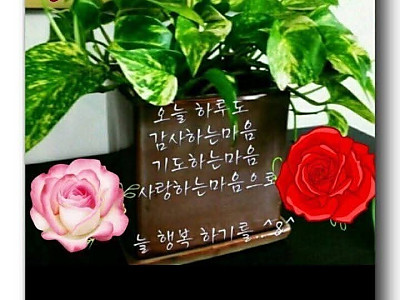 오늘 하루도
감사하는마음
기도하는마음
사랑하는마음으로
늘 행복 하기를..^&^